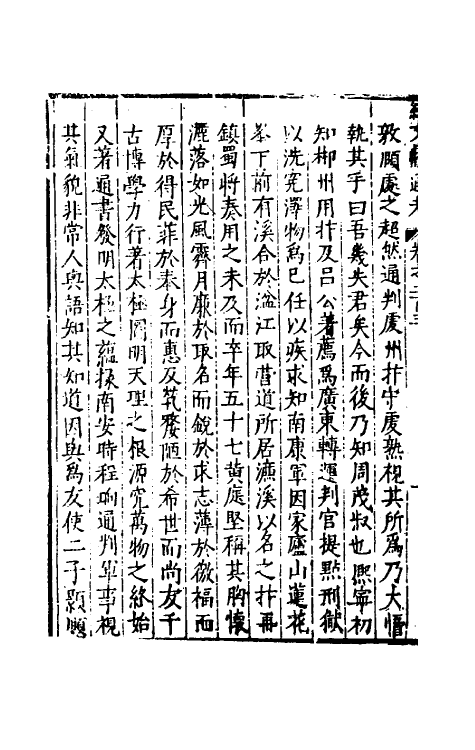 敦頤處之超然通判虔州抃守虔熟視其所爲乃大悟
執其手曰吾幾失君矣今而後乃知周茂叔也熙寧初
知郴州用抃及呂公著薦爲廣東轉運判官提點刑獄
以洗冤澤物爲己任以疾求知南康軍因家廬山蓮花
峯下前有溪合於湓江取營道所居濂溪以名之抃再
鎮蜀將奏用之未及而卒年五十七黃庭堅稱其胸懷
灑落如光風霽月廉於取名而銳於求志薄於徼福而
厚於得民菲於奉身而惠及茕嫠陋於希世而尚友千
古博學力行著太極圖明天理之根源究萬物之終始
又著通書發明太極之蘊掾南安時程珦通判軍事視
其氣貌非常人與語知其知道因與爲友使二子顥頤